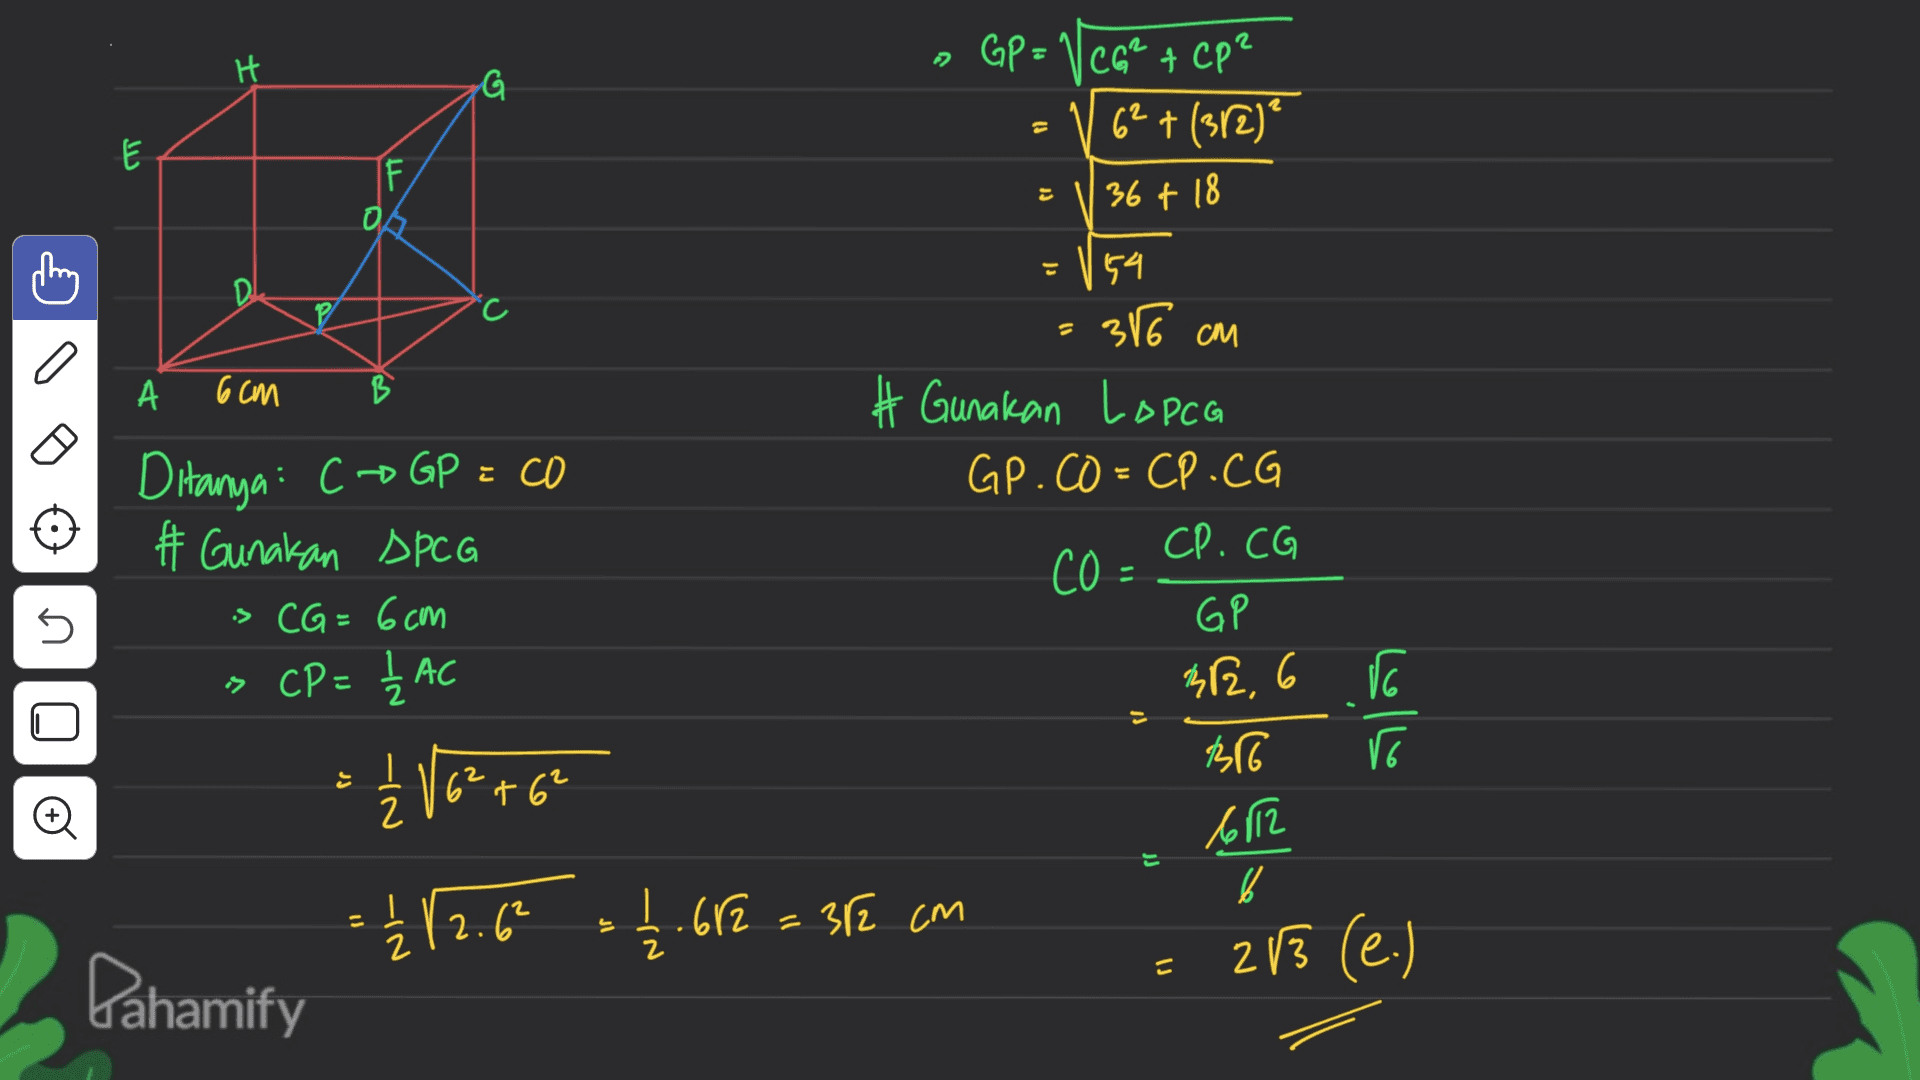 H
G
E
F
O
D
P
C
A
6 cm
B
Ditanya: C → GP = CO
# Gunakan △PCG
⇒ CG = 6 cm
⇒ CP = 1/2 AC
= 1/2 √(6² + 6²)
= 1/2 √(2.6²) = 1/2 . 6√2 = 3√2 cm
⇒ GP = √(CG² + CP²)
= √(6² + (3√2)²)
= √(36 + 18)
= √54
= 3√6 cm
# Gunakan L△PCG
GP . CO = CP . CG
CO = CP . CG / GP
= 3√2 . 6 / 3√6 . √6 / √6
= 6√12 / 6
= 2√3 (e.)
Pahamify